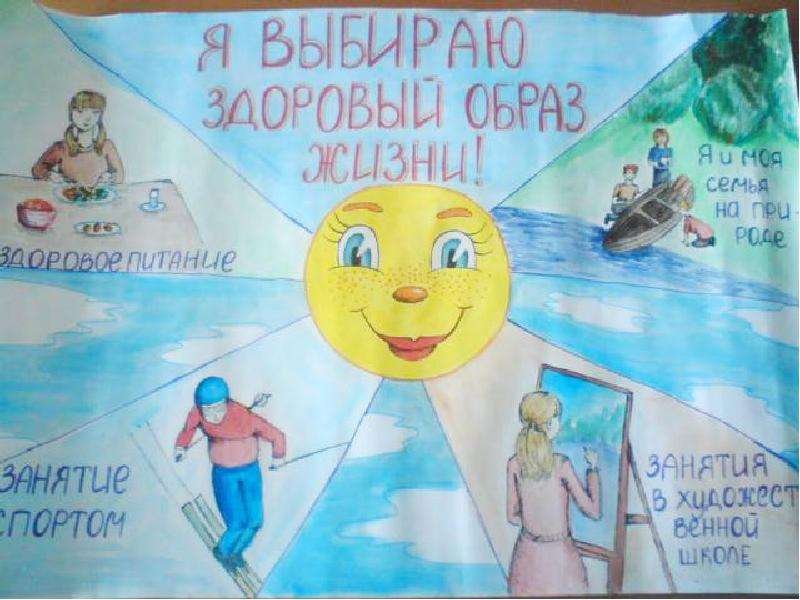 Я ВЫБИРАЮ
ЗДОРОВЫЙ ОБРАЗ
ЖИЗНИ!
Я И МОЯ
СЕМЬЯ
НА ПРИ-
РОДЕ
ЗДОРОВОЕ ПИТАНИЕ
ЗАНЯТИЕ
СПОРТОМ
ЗАНЯТИЯ
В ХУДОЖЕСТ
ВЕННОЙ
ШКОЛЕ